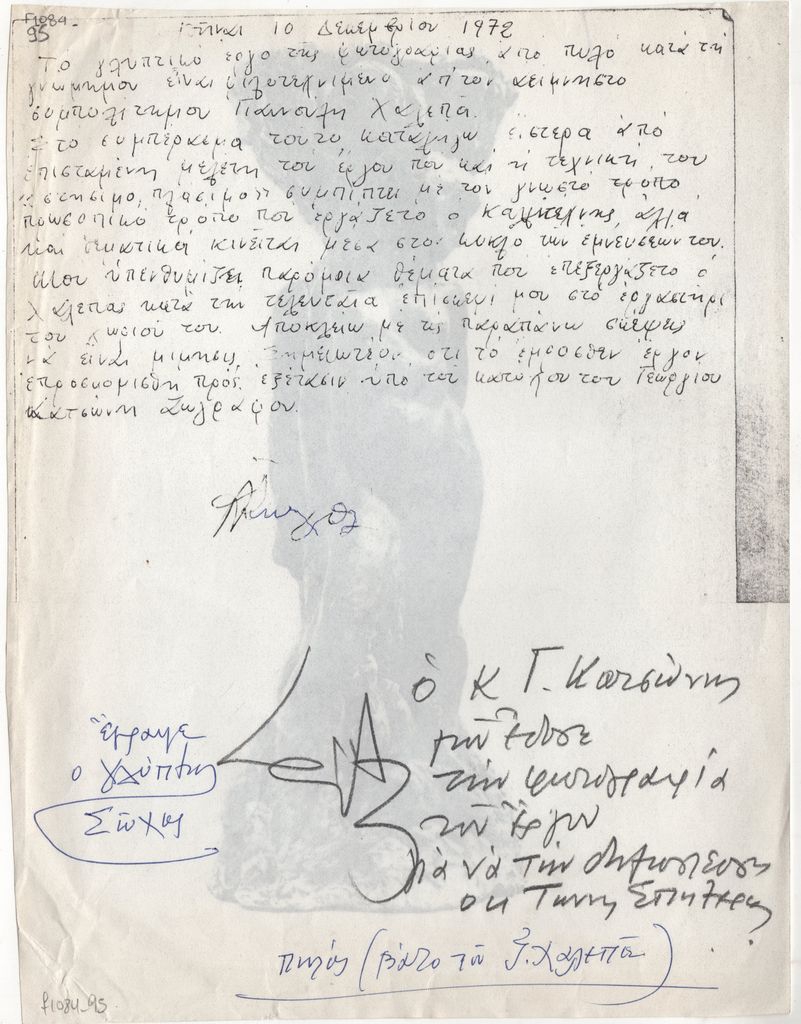 f1084-
95
Αθήναι 10 Δεκεμβρίου 1972
Το γλυπτικό έργο της φωτογραφίας, από πυλό κατά τη
γνώμημου είναι φιλοτεχνιμένο απ' τον αείμνηστο
συμπολίτημου Γιαννούλη Χαλεπά.
Στο συμπέρασμα τούτο καταλήγω ύστερα από
επισταμένη μελέτη του έργου που και η τεχνική του
πλάσιμο συμπίπτει με τον γνωστό τρόπο
προσοπικό τρόπο που εργάζετο ο καλητέχνης, αλλά
και κινείται μέσα στο κύκλο των εμνεύσεων του.
Μου υπενθυμίζει παρόμοια θέματα που επεξεργάζετο ο
Χαλεπάς κατά την τελευταία επίσκεψή μου στο εργαστήρι
του χωριού του. Αποκλείω με τις παραπάνω σκέψεις
νά είναι μίμησις. Σημειωτέον οτι το έμπροσθεν έργον
επροσκομίσθη προς εξέτασιν υπό του κατόχου του Γεωργίου
Κατσώνη Ζωγράφου.
ὁ κ Γ. Κατσώνης
μου έδωσε
την φωτογραφία
του έργου
για νά την δημοσιεύση
ο κ Τώνης Σπητέρης
ἔγραψε
ο γλύπτης
Σῶχος
πηλός (βάζο του Γ. Χαλεπᾶ)
f1084_95